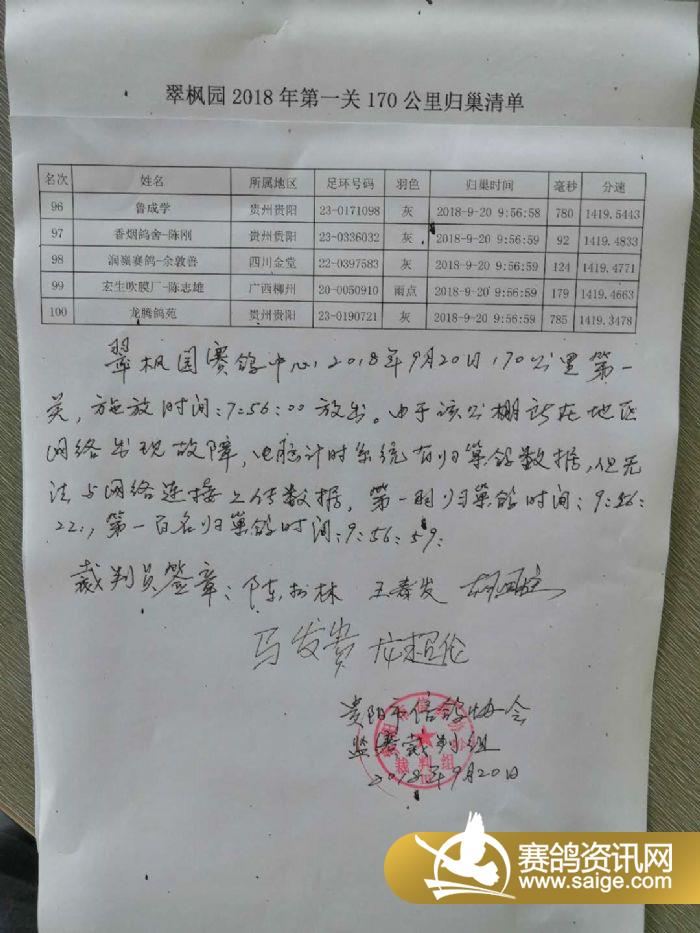 翠枫园2018年第一关170公里归巢清单
名次 姓名 所属地区 足环号码 羽色 归巢时间 毫秒 分速
96 鲁成学 贵州贵阳 23-0171098 灰 2018-9-20 9:56:58 780 1419.5443
97 香烟鸽舍-陈刚 贵州贵阳 23-0336032 灰 2018-9-20 9:56:59 92 1419.4833
98 润巅赛鸽-佘敦善 四川金堂 22-0397583 灰 2018-9-20 9:56:59 124 1419.4771
99 宏生吹膜厂-陈志雄 广西柳州 20-0050910 雨点 2018-9-20 9:56:59 179 1419.4663
100 龙腾鸽苑 贵州贵阳 23-0190721 灰 2018-9-20 9:56:59 785 1419.3478
翠枫园赛鸽中心,2018年9月20日170公里第一
关,施放时间:7:56:00放出。由于该公棚所在地区
网络出现故障,电脑计时系统有归巢鸽数据,但无
法与网络连接上传数据,第一羽归巢鸽时间:9:56:
22:,第一百名归巢鸽时间:9:56:59:
裁判员签章:陈 林 王春发 胡
马发贵 龙超伦
贵阳市信鸽协会
监赛裁判组
2018年9月20日
裁判组
赛鸽资讯网
www.saige.com